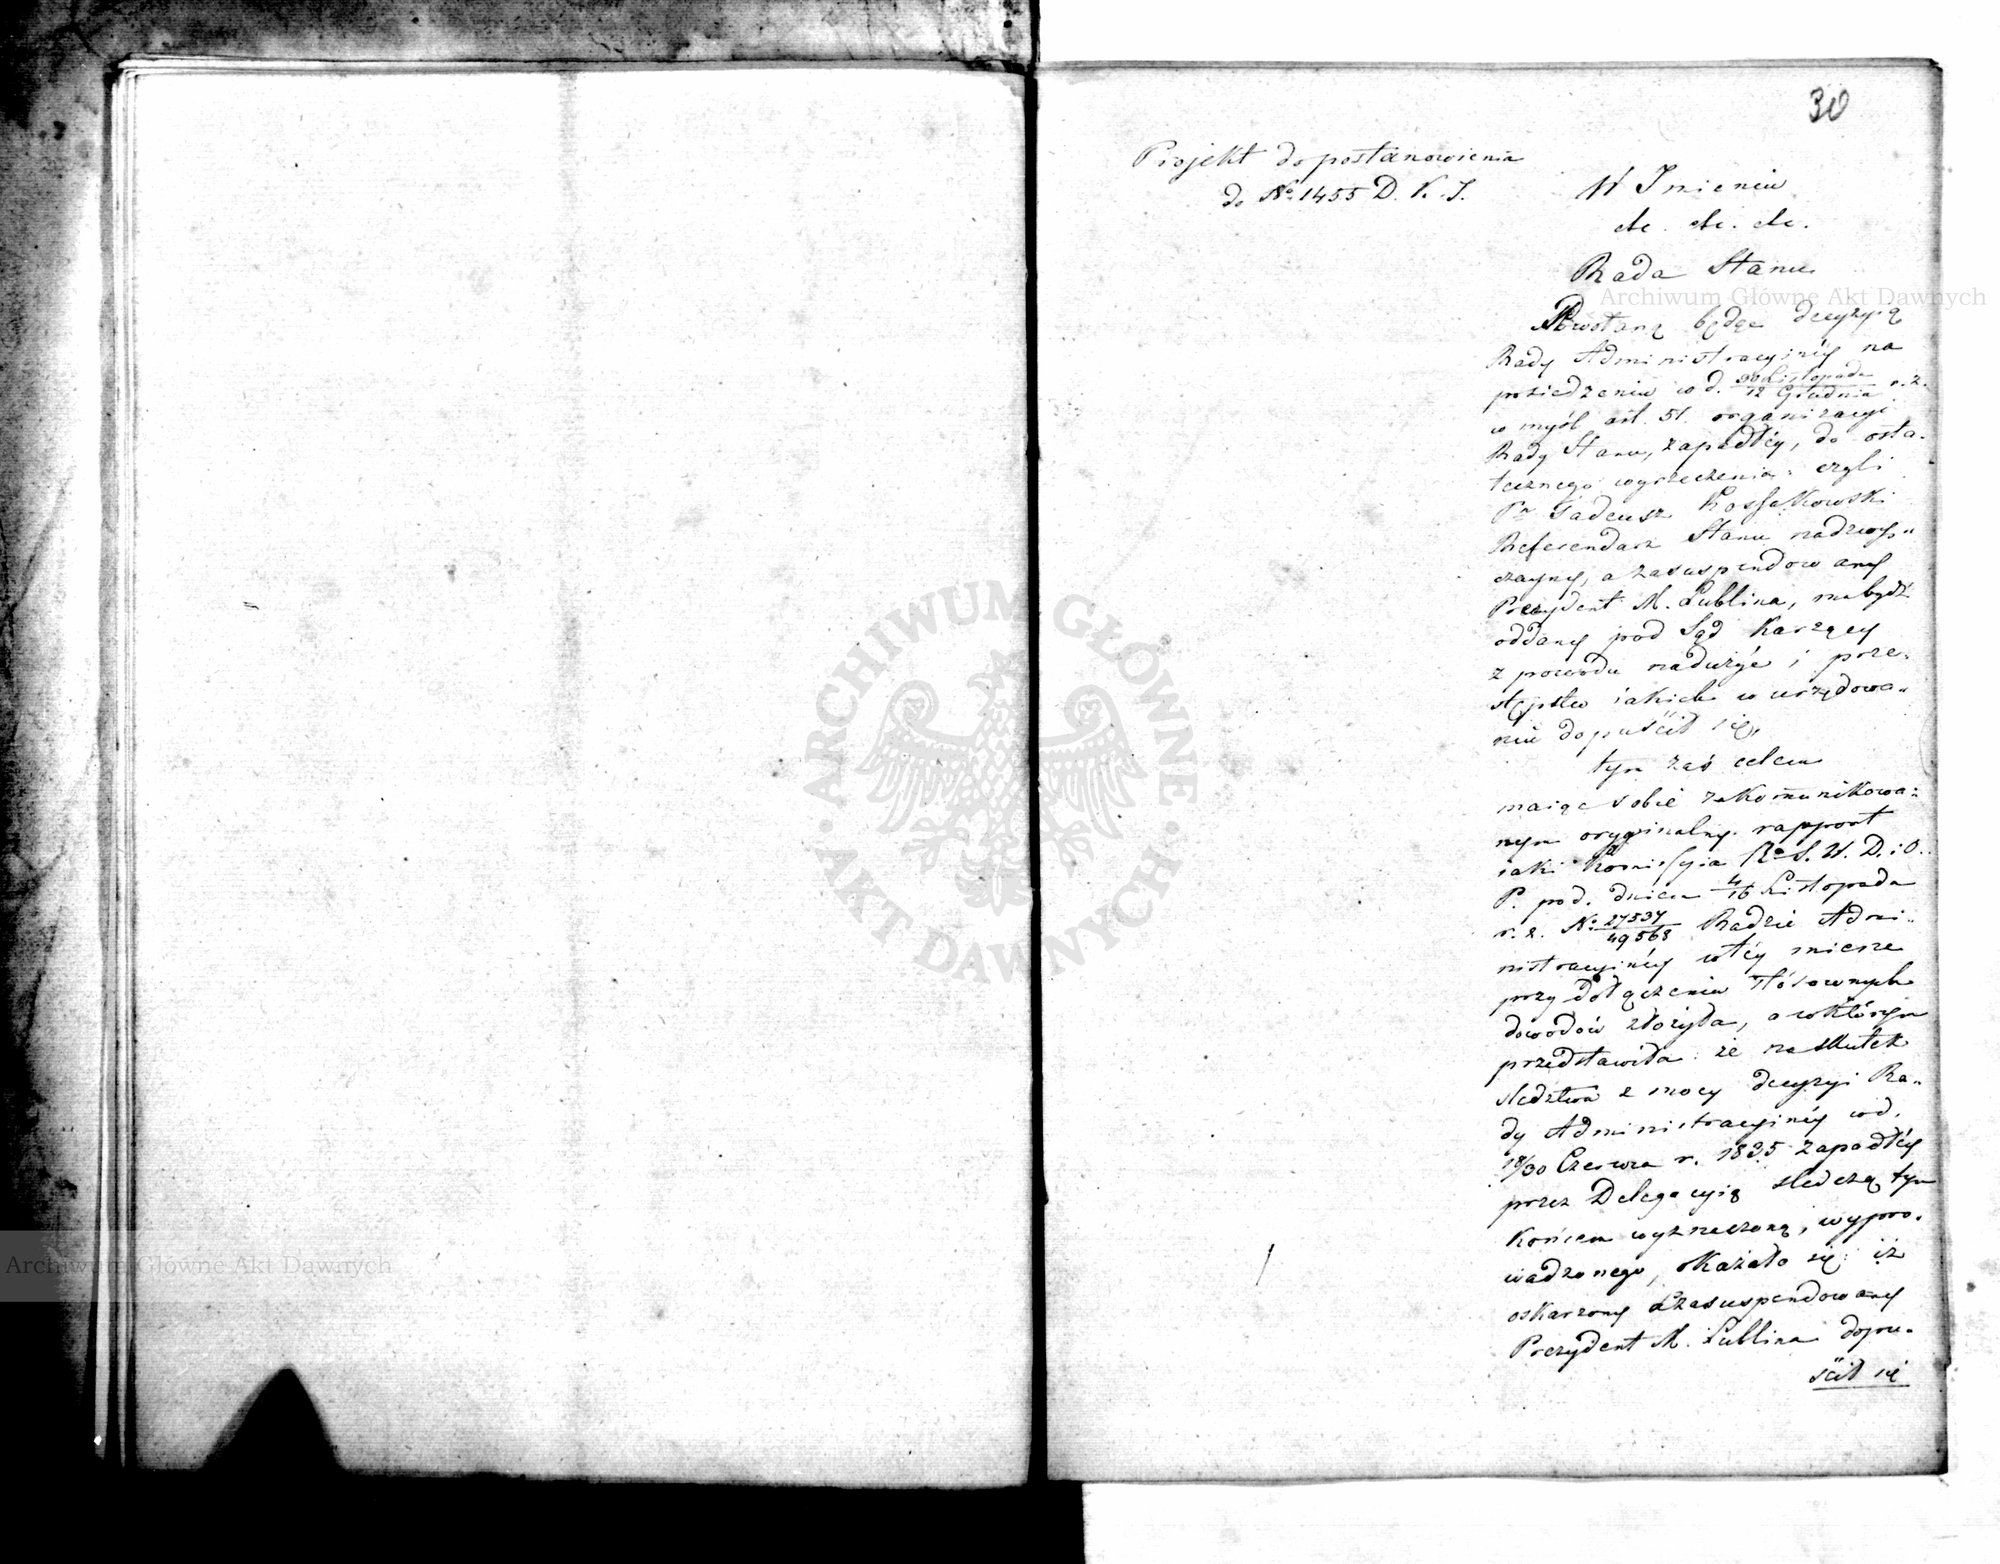 30
Projekt do postanowienia
do No. 1455 D. K. S.
W Imieniu
etc. etc. etc.
Rada Stanu
Powołaną będąc decyzyią
Rady Administracyinéy na
posiedzeniu w d. 30 Listopada / 12 Grudnia r. z.
w myśl art. 51. organizacyi
Rady Stanu, zapadłéy, do osta-
tecznego wyrzeczenia: czyli
Pn Tadeusz Kossakowski
Referendarz Stanu nadzwy-
czayny, a zasuspendowany
Prezydent M. Lublina, ma bydź
oddany pod Sąd Karzący
z powodu nadużyć i prze-
stępstw iakich w urzędowa-
niu dopuścił się,
tym zaś celem
maiąc sobie zakomunikowa-
nym oryginalny rapport
iaki Komissyia Ra S. W. D. i O.
P. pod. dniem 4/16 Listopada
r. z. No. 27537/49568 Radzie Admi-
nistracyinéy w téy mierze
przy dołączeniu stósownych
dowodów złożyła, a w którym
przedstawiła: że na skutek
sledztwa z mocy decyzyi Ra-
dy Administracyinéy w d.
18/30 Czerwca r. 1835 zapadłéy
przez Delegacyią sledczą tym
końcem wyznaczoną, wypro-
wadzonego, okazało się: iż
oskarzony zasuspendowany
Prezydent M. Lublina dopu-
ścił się
Archiwum Główne Akt Dawnych
Archiwum Główne Akt Dawnych
ARCHIWUM GŁÓWNE
AKT DAWNYCH